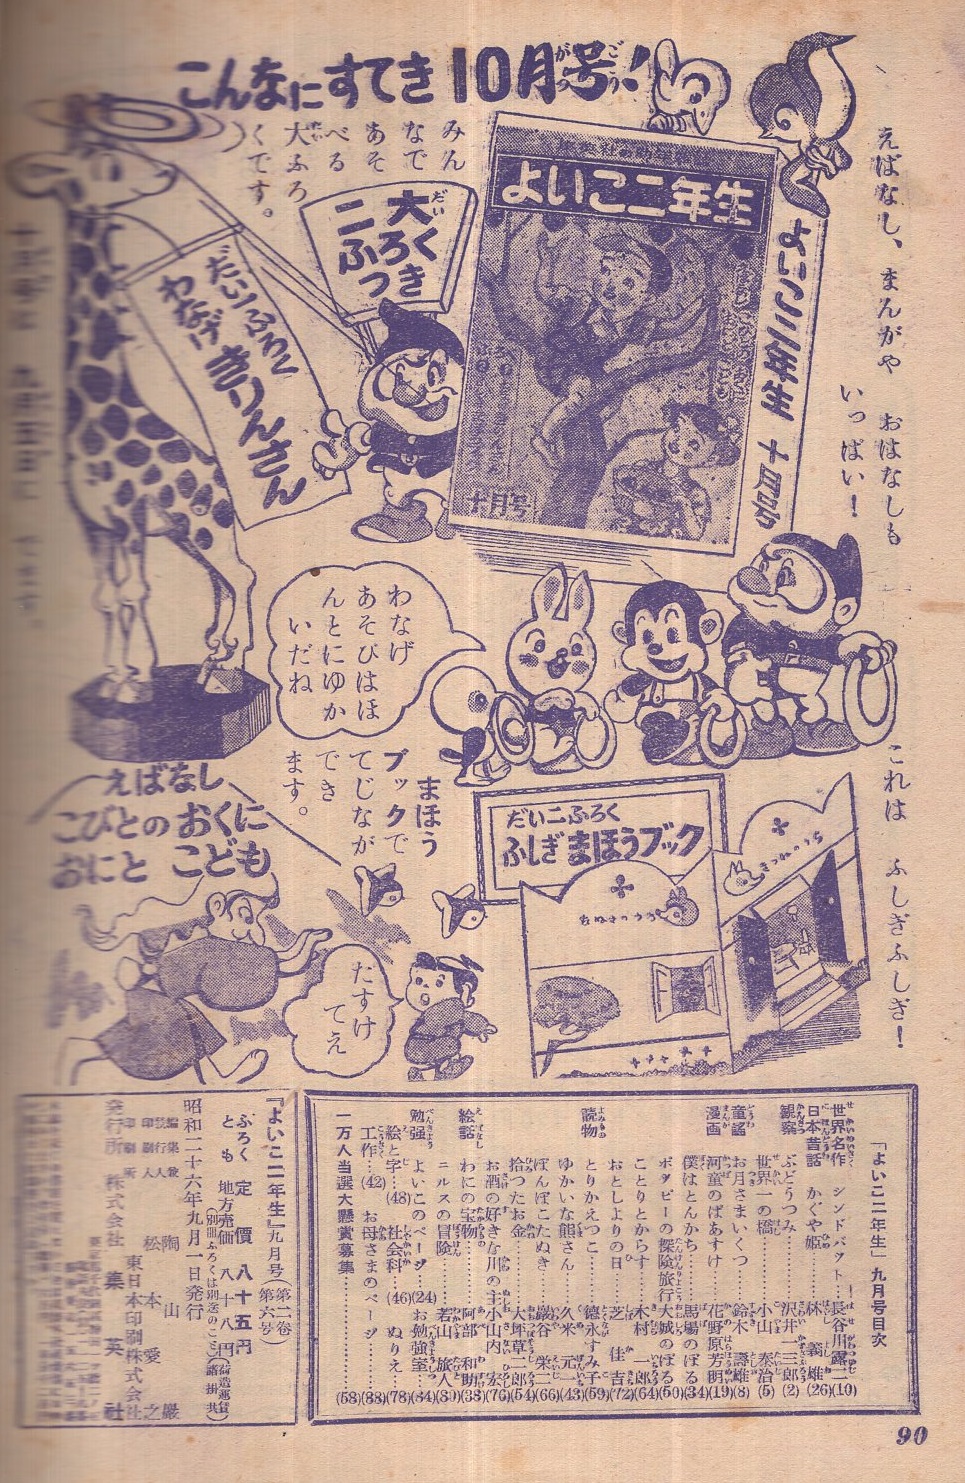 こんなにすてき10月号！
えばなし、まんがや　おはなしも
いっぱい！
これは　ふしぎふしぎ！
よいこ二年生
よいこ二年生　十月号
十月号
みん
なで
あそ
べる
大ふろ
くです。
大
二ふろく
つき
だい一ふろく
わなげ　きりんさん
わなげ
あそびはほ
んとにゆか
いだね
まほう
ブックで
てじなが
でき
ます。
だい二ふろく
ふしぎ　まほうブック
えばなし
こびとの　おくに
おにと　こども
たすけ
てえ
『よいこ二年生』九月号目次
世界名作　シンドバット……長谷川露二(10)
日本昔話　かぐや姫……林　義雄(26)
観察　ぶどうつみ……沢井一三郎(2)
世界一の橋……小山　泰治(5)
童謡　お月さまいくつ……鈴木　寿雄(8)
漫画　河童のぱあすけ……花野原芳明(19)
僕はとんから……馬場のぼる(34)
ポタビーの探険旅行　大城のぼる(50)
読物　ことりとからす……木村　一郎(64)
おとしよりの日……芝　佳吉(72)
とりかえっこ……徳永すみ子(59)
ゆかいな熊さん……久米　元一(43)
ぽんぽこたぬき……巌谷　栄二(66)
拾つたお金……大坪草二郎(54)
お酒の好きな川の主　小山内　宏(76)
絵話　わにの宝物……阿部　和助(38)
ニルスの冒険……若山　旅人(80)
勉強　よいこのページ(24)　お勉強室(84)
絵と字……(48)　社会科……(46)　ぬりえ……(78)
工作……(42)　お母さまのページ……(88)
一万人当選大懸賞募集……(58)
『よいこ二年生』九月号(第二巻第六号)
ふろくとも　定價　八十五円
地方売価　八十八円
昭和二十六年九月一日発行
編集兼発行人　陶山　巌
印刷人　松本愛之
印刷所　東日本印刷株式会社
発行所　株式会社　集英社
90